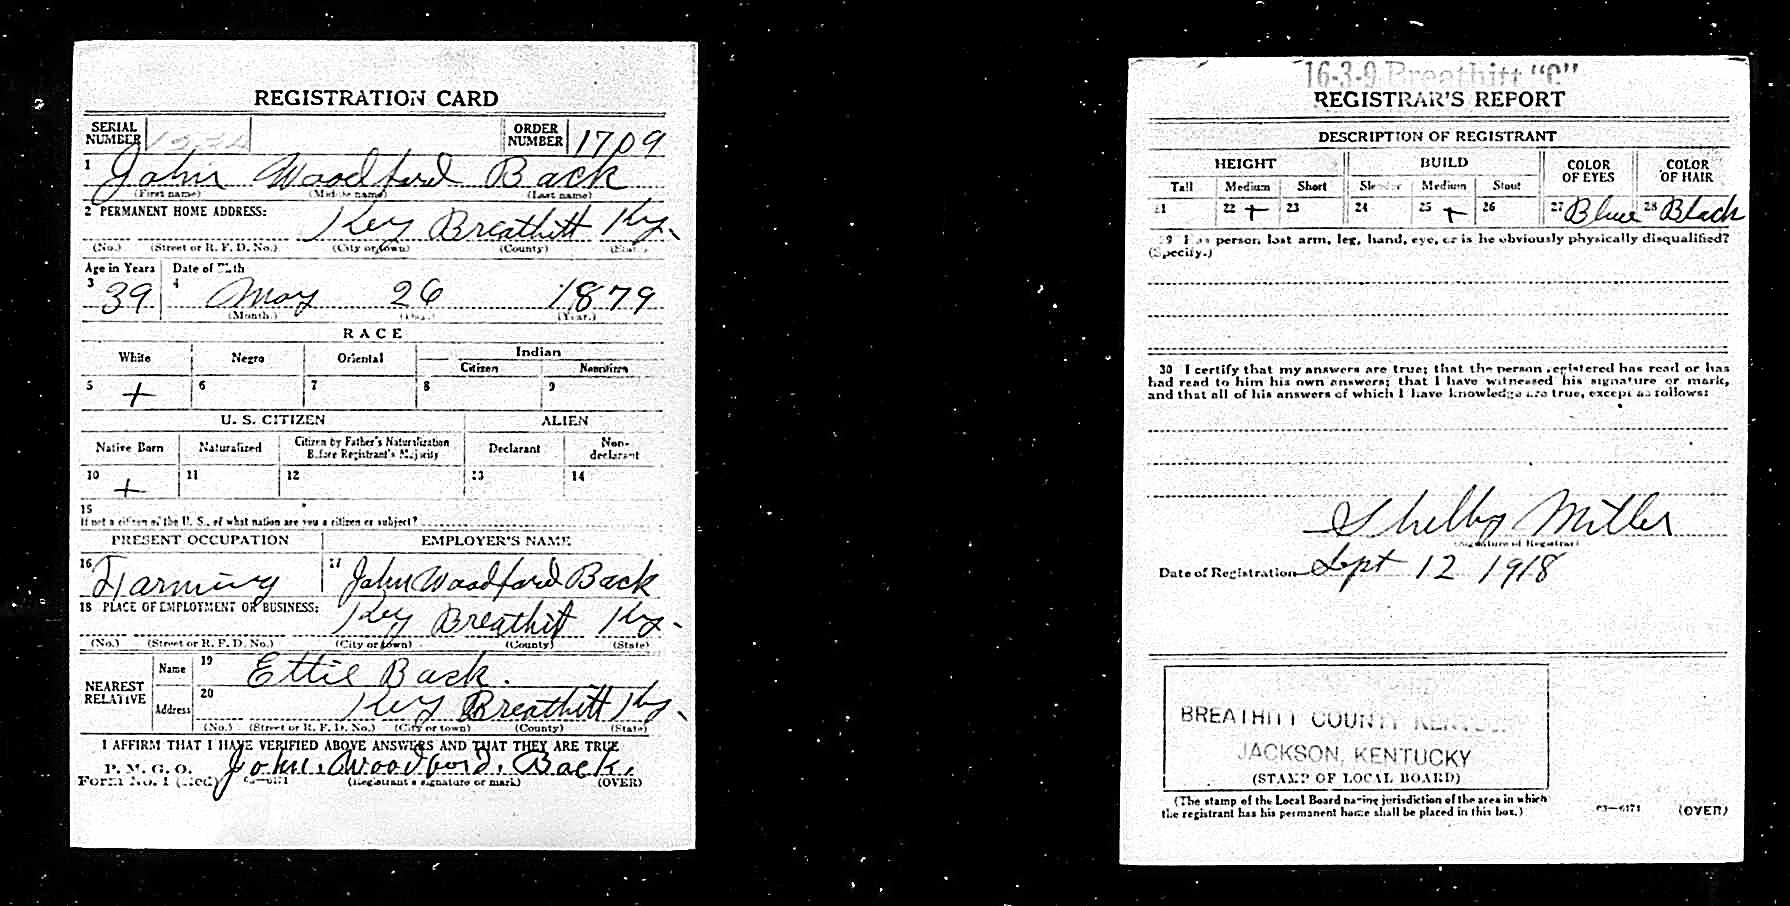 REGISTRATION CARD
SERIAL NUMBER
ORDER NUMBER 1709
1 John Woodford Back
(First name) (Middle name) (Last name)
2 PERMANENT HOME ADDRESS: Key Breathitt Ky.
(No.) (Street or R. F. D. No.) (City or town) (County) (State)
Age in Years Date of Birth
3 39 4 May 26 1879
(Month.) (Day.) (Year.)
RACE
White Negro Oriental Indian
Citizen Noncitizen
5 + 6 7 8 9
U. S. CITIZEN ALIEN
Native Born Naturalized Citizen by Father's Naturalization Before Registrant's Majority Declarant Non-declarant
10 + 11 12 13 14
15
If not a citizen of the U. S., of what nation are you a citizen or subject?
PRESENT OCCUPATION EMPLOYER'S NAME
16 Farming 17 John Woodford Back
18 PLACE OF EMPLOYMENT OR BUSINESS: Key Breathitt Ky.
(No.) (Street or R. F. D. No.) (City or town) (County) (State)
NEAREST RELATIVE Name 19 Ettie Back.
Address 20 Key Breathitt Ky.
(No.) (Street or R. F. D. No.) (City or town) (County) (State)
I AFFIRM THAT I HAVE VERIFIED ABOVE ANSWERS AND THAT THEY ARE TRUE
P. M. G. O. John. Woodford. Back.
Form No. 1 (Red) (Registrant's signature or mark) (OVER)
16-3-9 Breathitt "C"
REGISTRAR'S REPORT
DESCRIPTION OF REGISTRANT
HEIGHT BUILD COLOR OF EYES COLOR OF HAIR
Tall Medium Short Slender Medium Stout
21 22 + 23 24 25 + 26 27 Blue 28 Black
29 Has person, lost arm, leg, hand, eye, or is he obviously physically disqualified?
(Specify.)
30 I certify that my answers are true; that the person registered has read or has
had read to him his own answers; that I have witnessed his signature or mark,
and that all of his answers of which I have knowledge are true, except as follows:
Shelby Miller
(Signature of Registrar)
Date of Registration Sept 12 1918
BREATHITT COUNTY KENTUCKY
JACKSON, KENTUCKY
(STAMP OF LOCAL BOARD)
(The stamp of the Local Board having jurisdiction of the area in which
the registrant has his permanent home shall be placed in this box.)
03—6171 (OVER)